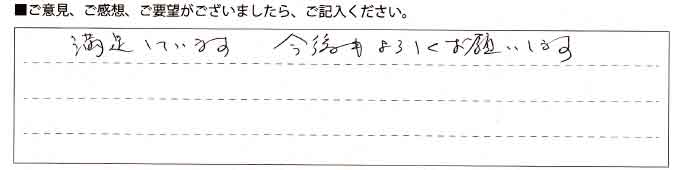 ■ご意見、ご感想、ご要望がございましたら、ご記入ください。
満足しています 今後もよろしくお願いします